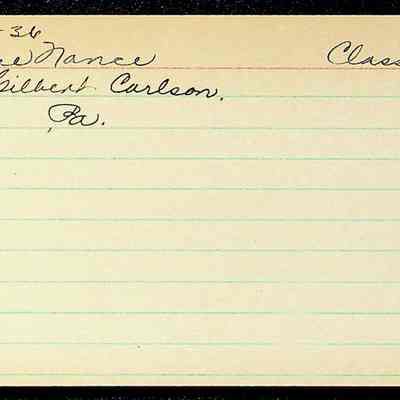 -36
ee Nance Class
Gilbert Carlson.
Pa.